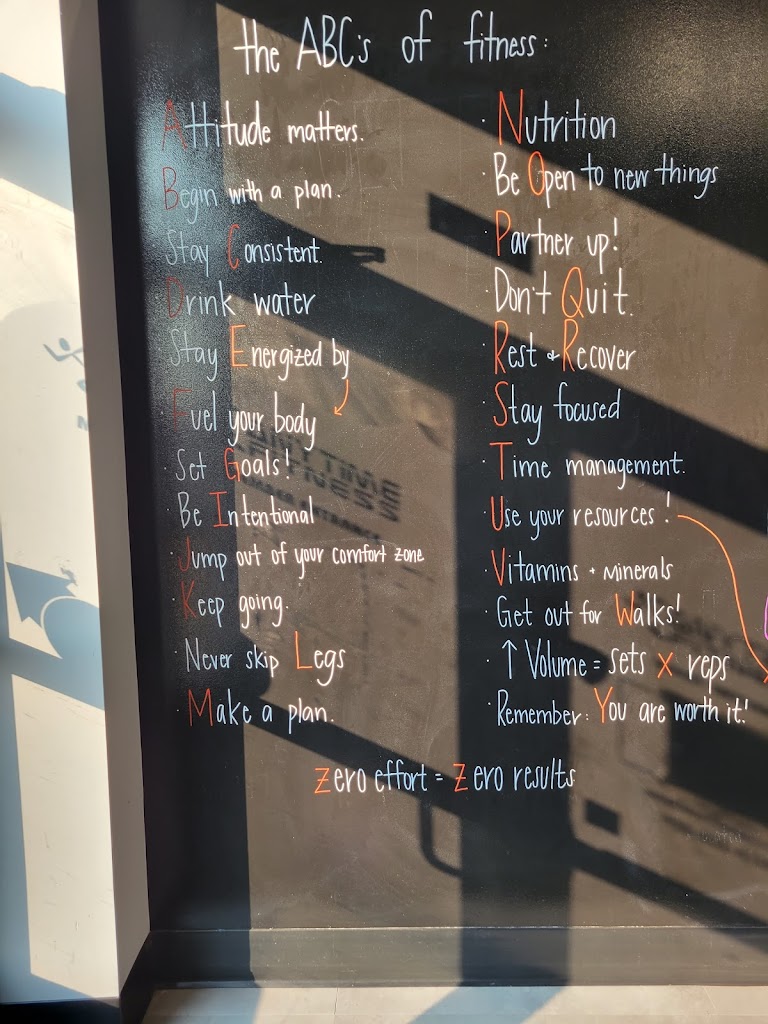 the ABC's of fitness:
Attitude matters.
Begin with a plan.
Stay Consistent.
Drink water
Stay Energized by
Fuel your body
· Set Goals!
· Be Intentional
· Jump out of your comfort zone
· Keep going.
· Never skip Legs
· Make a plan.
· Nutrition
· Be Open to new things
· Partner up!
· Don't Quit.
· Rest + Recover
· Stay focused
· Time management.
· Use your resources!
· Vitamins + Minerals
· Get out for Walks!
· ↑ Volume = sets x reps
· Remember: You are worth it!
Zero effort = Zero results
ANY TIME
FITNESS